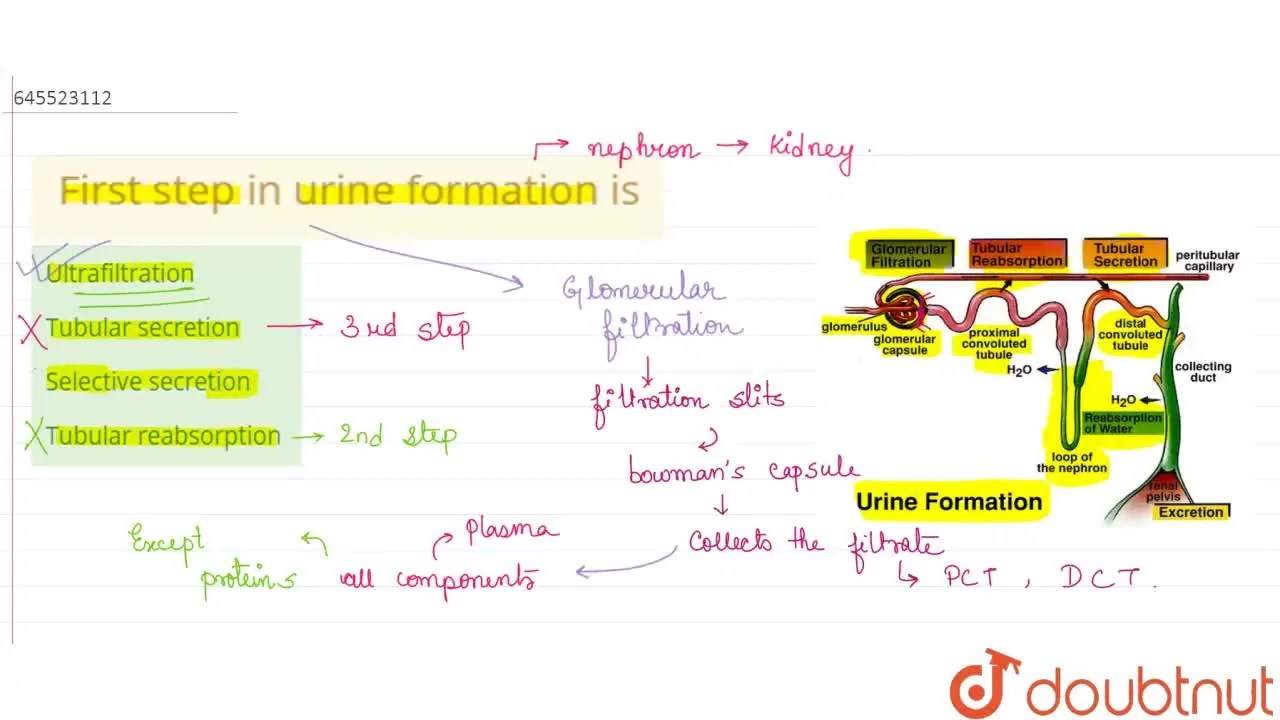 645523112
nephron → kidney.
First step in urine formation is
Ultrafiltration
Tubular secretion → 3rd step
Selective secretion
Tubular reabsorption → 2nd step
Glomerular
filtration
filtration slits
bowman's capsule
collects the filtrate
PCT, DCT.
Plasma
all components
Except
proteins
Glomerular
Filtration
Tubular
Reabsorption
Tubular
Secretion
peritubular
capillary
glomerulus
glomerular
capsule
proximal
convoluted
tubule
distal
convoluted
tubule
H₂O
collecting
duct
H₂O
Reabsorption
of Water
loop of
the nephron
renal
pelvis
Urine Formation
Excretion
doubtnut